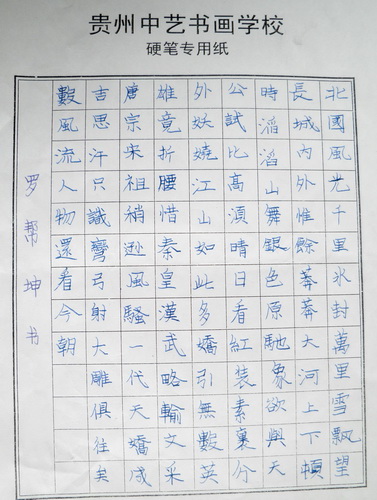 贵州中艺书画学校
硬笔专用纸
北國風光千里氷封萬里雪飄望
長城内外惟餘莽莽大河上下頓
時滔滔山舞銀色原馳象欲與天
公試比高須晴日看紅装素裹分
外妖嬈江山如此多嬌引無數英
雄竟折腰惜秦皇漢武略輸文采
唐宗宋祖稍逊風騷一代天嬌成
吉思汗只識彎弓射大雕俱往矣
數風流人物還看今朝
罗帮坤书